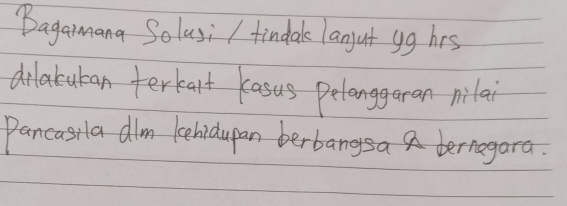 Bagaimana Solusi / tindak lanjut yg hrs
dilakukan terkait kasus pelanggaran nilai
Pancasila dlm kehidupan berbangsa & bernegara.